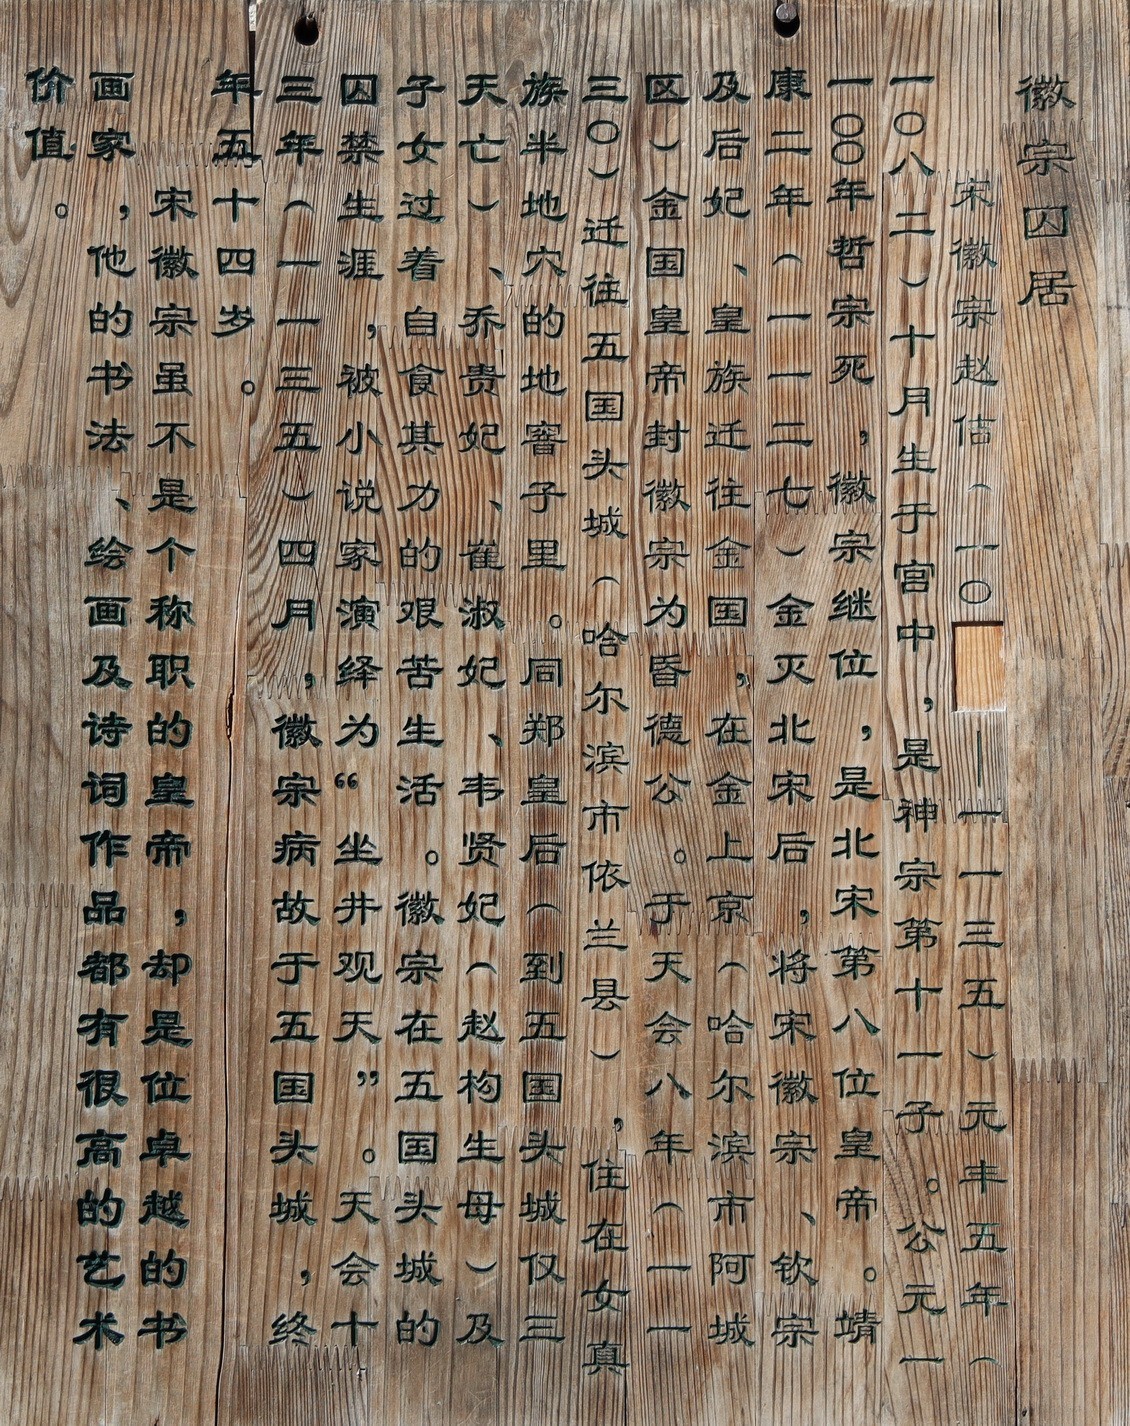 徽宗囚居
宋徽宗赵佶（一一〇——一一三五）元丰五年（
一〇八二）十月生于宫中，是神宗第十一子。公元一
一〇〇年哲宗死，徽宗继位，是北宋第八位皇帝。靖
康二年（一一二七）金灭北宋后，将宋徽宗、钦宗
及后妃、皇族迁往金国，在金上京（哈尔滨市阿城
区）金国皇帝封徽宗为昏德公。于天会八年（一一
三〇）迁往五国头城（哈尔滨市依兰县），住在女真
族半地穴的地窨子里。同郑皇后（到五国头城仅三
天亡）、乔贵妃、崔淑妃、韦贤妃（赵构生母）及
子女过着自食其力的艰苦生活。徽宗在五国头城的
囚禁生涯，被小说家演绎为“坐井观天”。天会十
三年（一一三五）四月，徽宗病故于五国头城，终
年五十四岁。
宋徽宗虽不是个称职的皇帝，却是位卓越的书
画家，他的书法、绘画及诗词作品都有很高的艺术
价值。